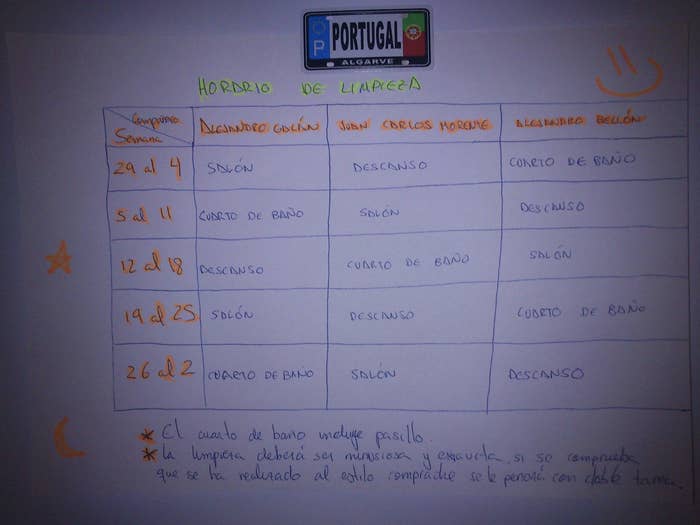 P PORTUGAL
ALGARVE
HORARIO DE LIMPIEZA
Semana ALEJANDRO GALÁN JUAN CARLOS MORENTE ALEJANDRO BELLÓN
29 al 4 SALÓN DESCANSO CUARTO DE BAÑO
5 al 11 CUARTO DE BAÑO SALÓN DESCANSO
12 al 18 DESCANSO CUARTO DE BAÑO SALÓN
19 al 25 SALÓN DESCANSO CUARTO DE BAÑO
26 al 2 CUARTO DE BAÑO SALÓN DESCANSO
* El cuarto de baño incluye pasillo.
* La limpieza deberá ser minusiosa y exausta, si se comprueba
que se ha realizado al estilo se le penará con doble tarea.